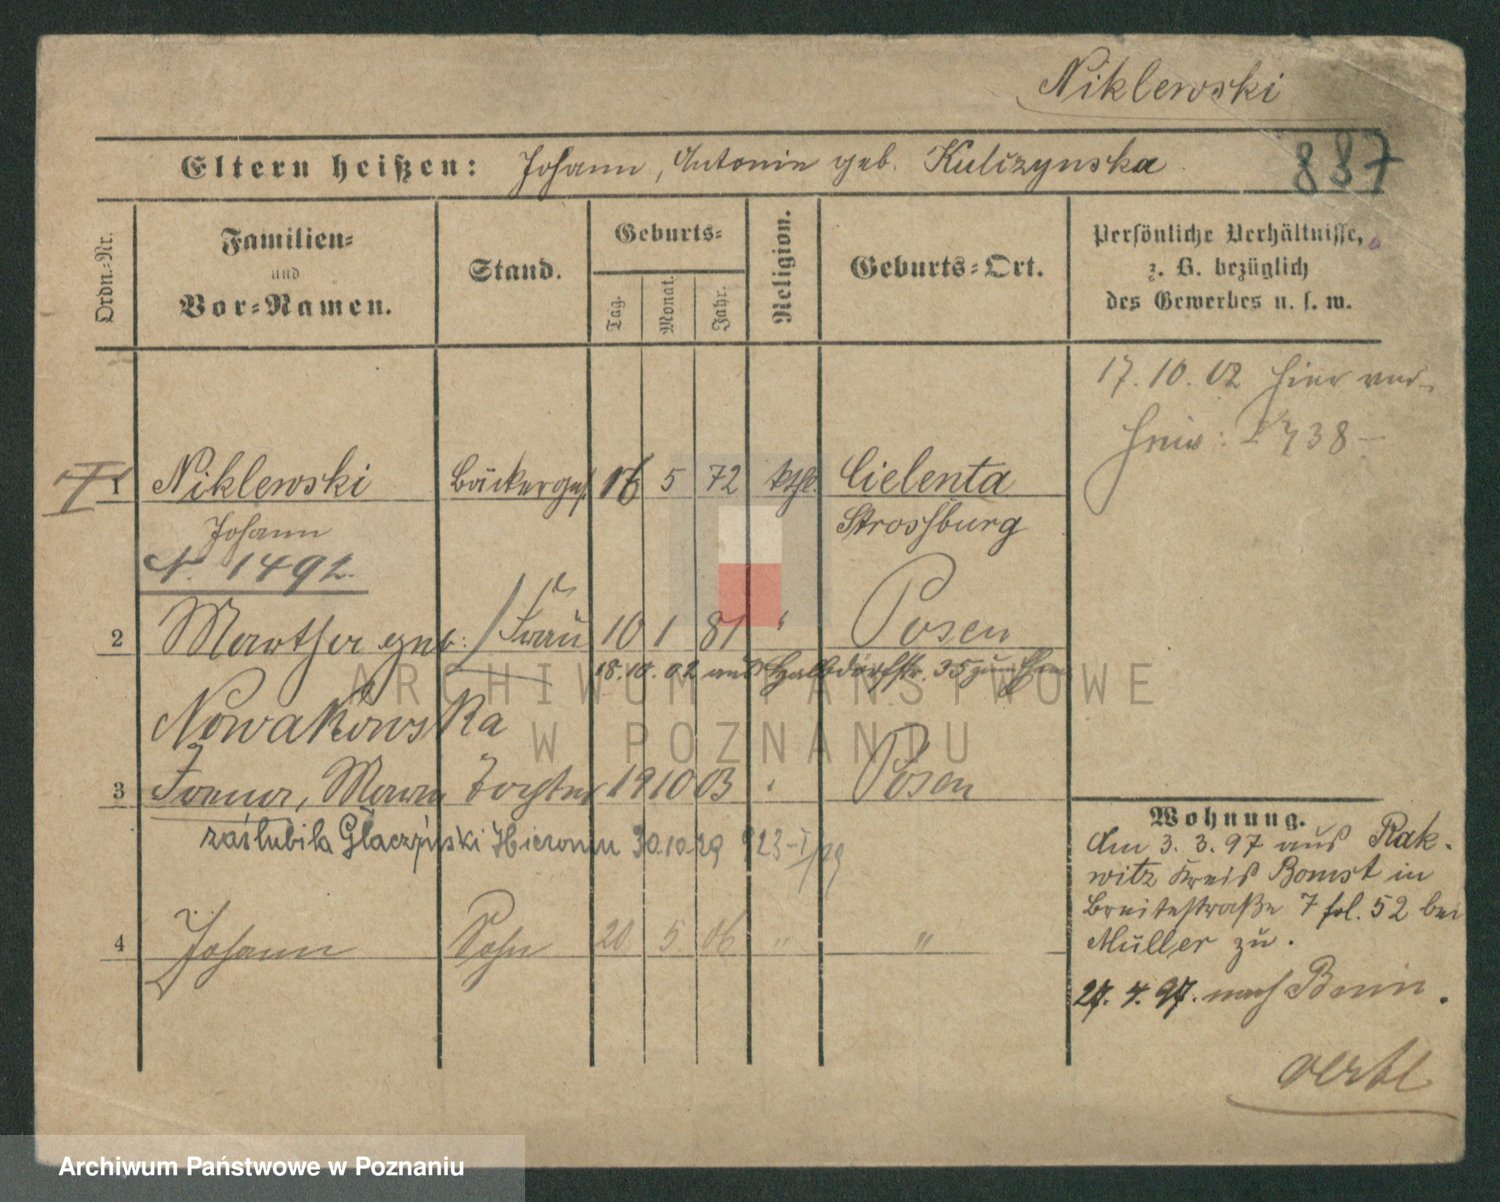 Niklewski
887
Eltern heißen: Johann, Antonie geb. Kulizynska
Ordn.-Nr.
Familien-
und
Vor-Namen.
Stand.
Geburts-
Tag.
Monat.
Jahr.
Religion.
Geburts-Ort.
Persönliche Verhältnisse,
z. B. bezüglich
des Gewerbes u. s. w.
17. 10. 02 hier ver-
heir: 738
1 Niklewski Bäckerges. 16 5 72 kth. Cielenta
Johann Strassburg
N. 1492.
2 Martha geb: Frau 10 1 81 " Posen
18.10.02 aus Halbdorfstr. 35 zum
Nowakowska
3 Irena, Maria Tochter 19 10 03 " Posen
zaślubiła Glaczyński Hieronim 30.10.29 923-I/29
4 Johann Sohn 20 5 06 " "
Wohnung.
Am 3. 3. 97 aus Rak-
witz Kreis Bomst in
Breitestraße 7 fol. 52 bei
Müller zu.
27. 4. 97. nach Bnin.
Oertel
ARCHIWUM PAŃSTWOWE
W POZNANIU
Archiwum Państwowe w Poznaniu